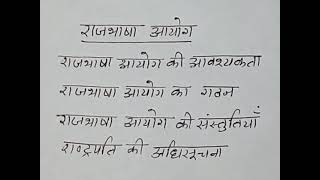 राजभाषा आयोग
राजभाषा आयोग की आवश्यकता
राजभाषा आयोग का गठन
राजभाषा आयोग की संस्तुतियाँ
राष्ट्रपति की अधिसूचना